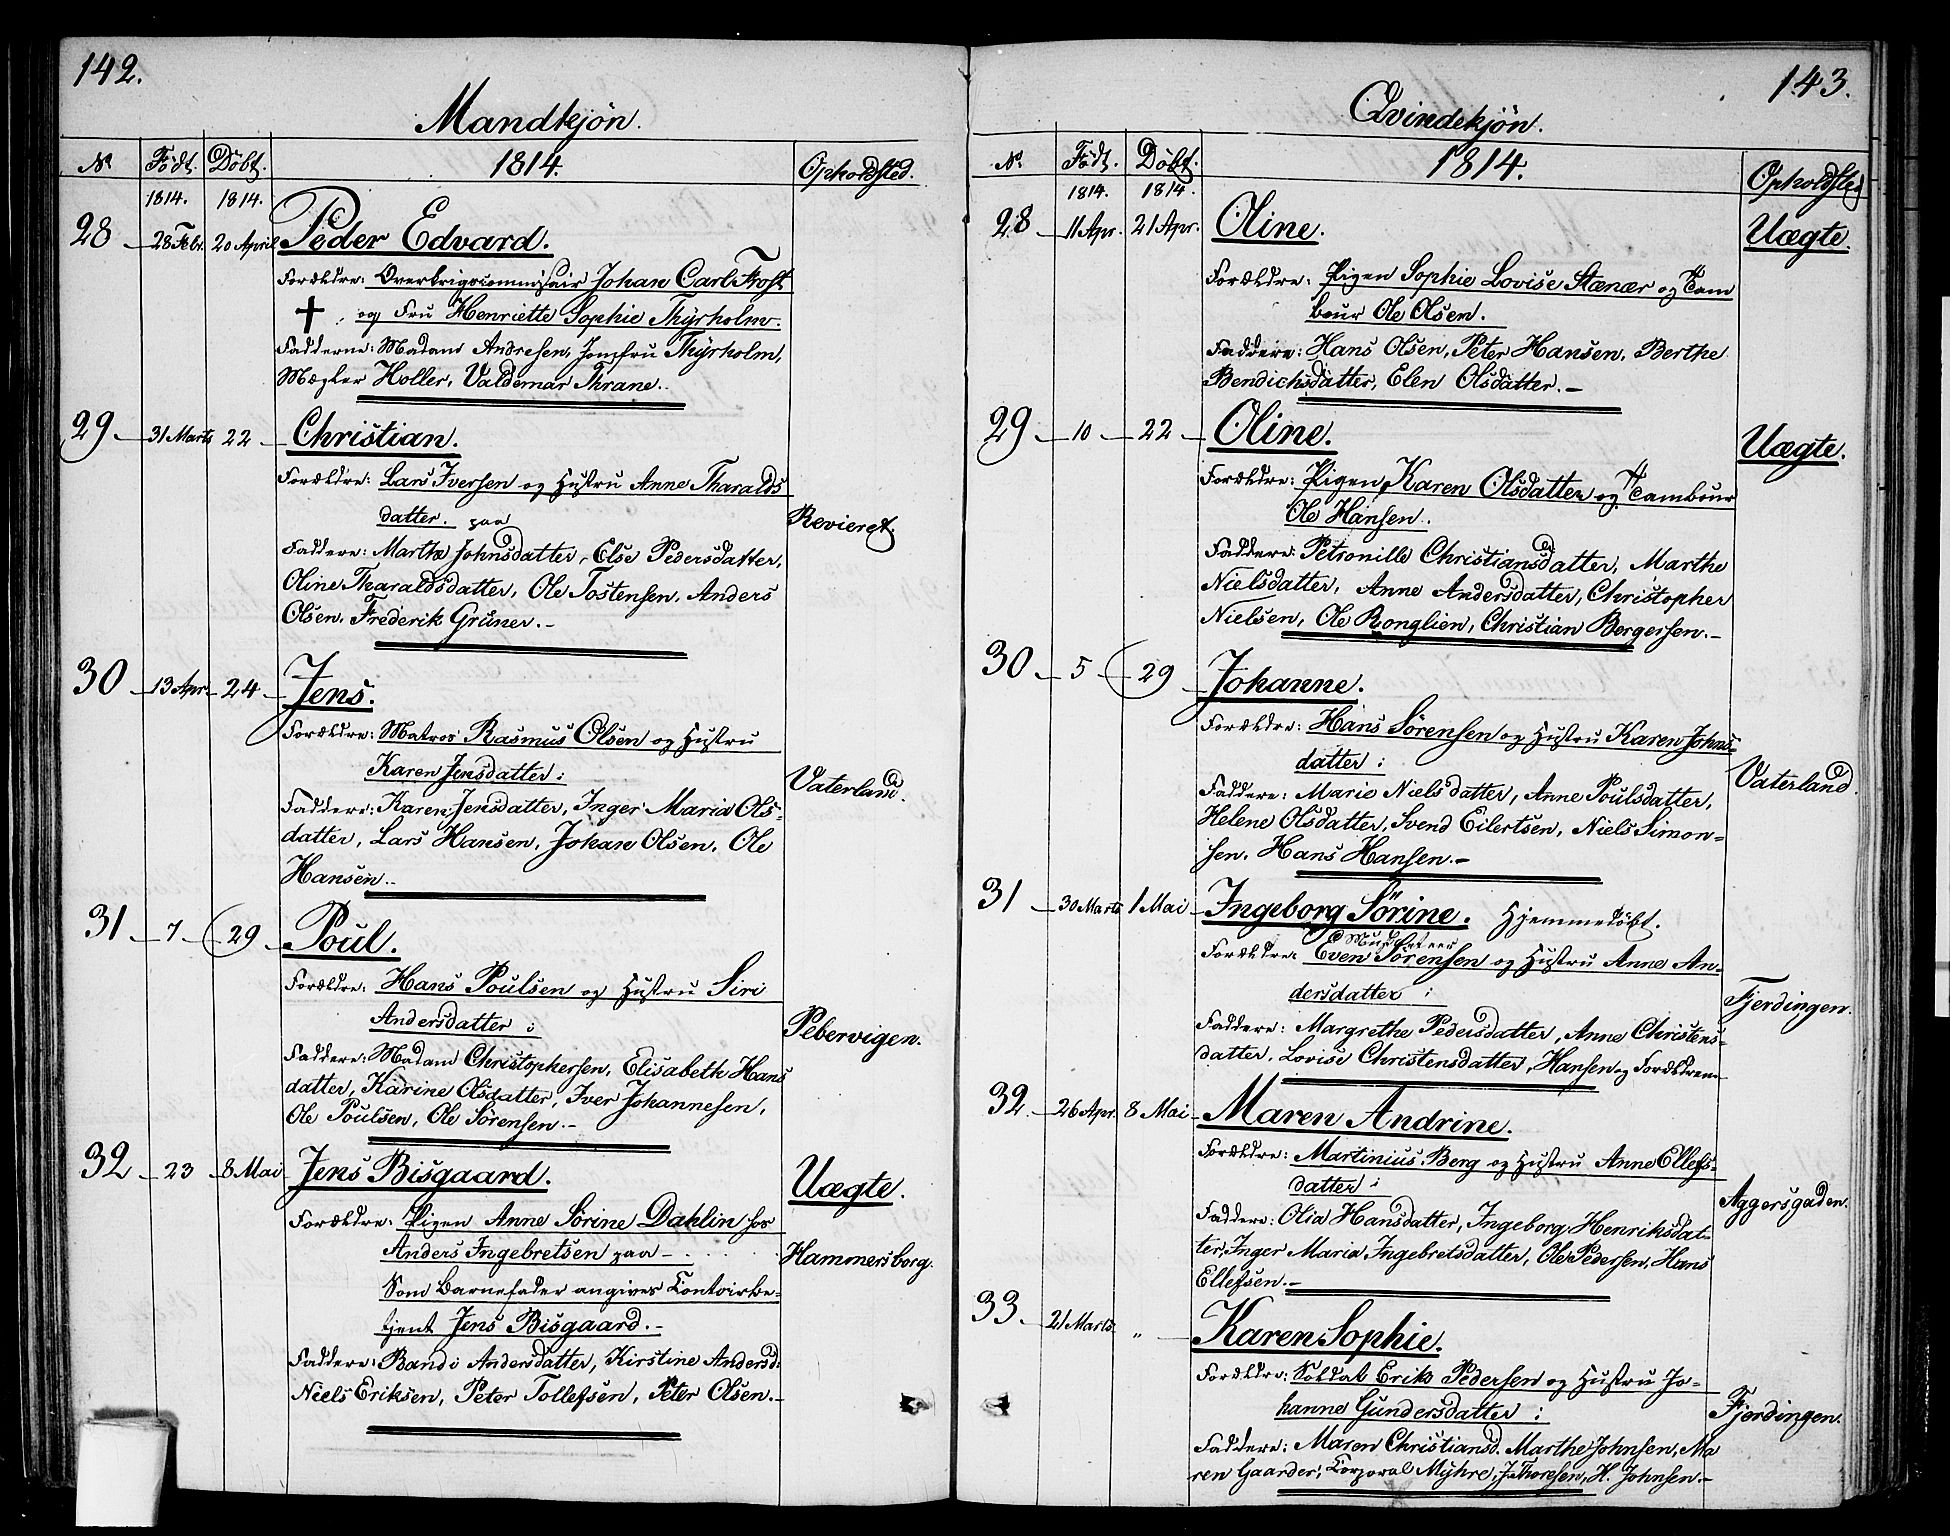 142.
Mandkjön.
No. Födt. Döbt. 1814. Opholdsted.
1814. 1814.
28 28 Febr. 20 April Peder Edvard.
Forældre: Overkrigscommissair Johan Carl Frost
† og Fru Henriette Sophie Thÿrholm.
Fadderne: Madam Andresen, Jomfru Thÿrholm,
Mægler Holler, Valdemar Thrane.
29 31 Marts 22 Christian.
Forældre: Lars Iversen og Hustru Anne Tharalds
datter. paa Revieret.
Faddere: Marthe Johnsdatter, Else Pedersdatter,
Oline Tharaldsdatter, Ole Tostensen, Anders
Olsen, Frederik Grüner.
30 13 Apr. 24 Jens.
Forældre: Matros Rasmus Olsen og Hustru
Karen Jensdatter: Vaterland.
Faddere: Karen Jensdatter, Inger Maria Ols-
datter, Lars Hansen, Johan Olsen, Ole
Hansen.
31 7 29 Poul.
Forældre: Hans Poulsen og Hustru Siri
Andersdatter: Pebervigen.
Faddere: Madam Christophersen, Elisabeth Hans
datter, Karine Olsdatter, Iver Johannesen,
Ole Poulsen, Ole Sörensen.
32 23 8 Mai Jens Bisgaard. Uægte.
Forældre: Pigen Anne Sörine Dahlin hos
Anders Ingebretsen paa Hammersborg.
Som Barnefader angives Contoirbe-
tjent Jens Bisgaard.
Faddere: Bandi Andersdatter, Kirstine Andersd:
Niels Eriksen, Peter Tollefsen, Peter Olsen.
143.
Qvindekjön.
No. Födt. Döbt. 1814. Opholdsted
1814. 1814.
28 11 Apr. 21 Apr. Oline. Uægte.
Forældre: Pigen Sophie Lovise Stænær og Tam
bour Ole Olsen.
Faddere: Hans Olsen, Peter Hansen, Berthe
Bendichsdatter, Elen Olsdatter.
29 10 22 Oline. Uægte.
Forældre: Pigen Karen Olsdatter og Tambour
Ole Hansen.
Faddere: Petronille Christiansdatter, Marthe
Nielsdatter, Anne Andersdatter, Christopher
Nielsen, Ole Ronglien, Christian Bergersen.
30 5 29 Johanne.
Forældre: Hans Sörensen og Hustru Karen Johns-
datter: Vaterland.
Faddere: Marie Nielsdatter, Anne Poulsdatter,
Helene Olsdatter, Svend Eilertsen, Niels Simon-
sen, Hans Hansen.
31 30 Marts 1 Mai Ingeborg Sörine. Hjemmedöbt.
Musqueteer
Forældre: Even Sörensen og Hustru Anne An-
dersdatter: Fjerdingen.
Faddere: Margrethe Pedersdatter, Anne Christens-
datter, Lovise Christensdatter, Hansen og Forældrene
32 26 Apr. 8 Mai Maren Andrine.
Forældre: Martinius Berg og Hustru Anne Ellefs-
datter: Aggersgaden.
Faddere: Olia Hansdatter, Ingeborg Henriksdat-
ter, Inger Maria Ingebretsdatter, Ole Pedersen, Hans
Ellefsen.
33 21 Marts „ Karen Sophie.
Forældre: Soldat Erik Pedersen og Hustru Jo-
hanne Gundersdatter: Fjerdingen.
Faddere: Maren Christiansd. Marthe Johnsen, Ma
ren Gaarder, Corporal Mÿhre, J. Thoresen, H. Johnsen.